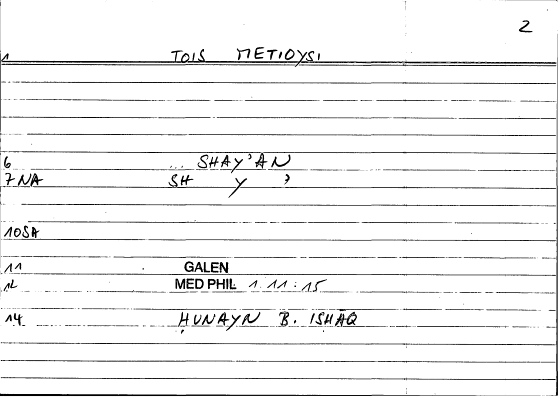 2
1 TOIS METIOYSI
6 ... SHAY'AN
7 NA SH Y '
10SA
11 GALEN
12 MED PHIL 1.11:15
14 ḤUNAYN B. ISḤĀQ